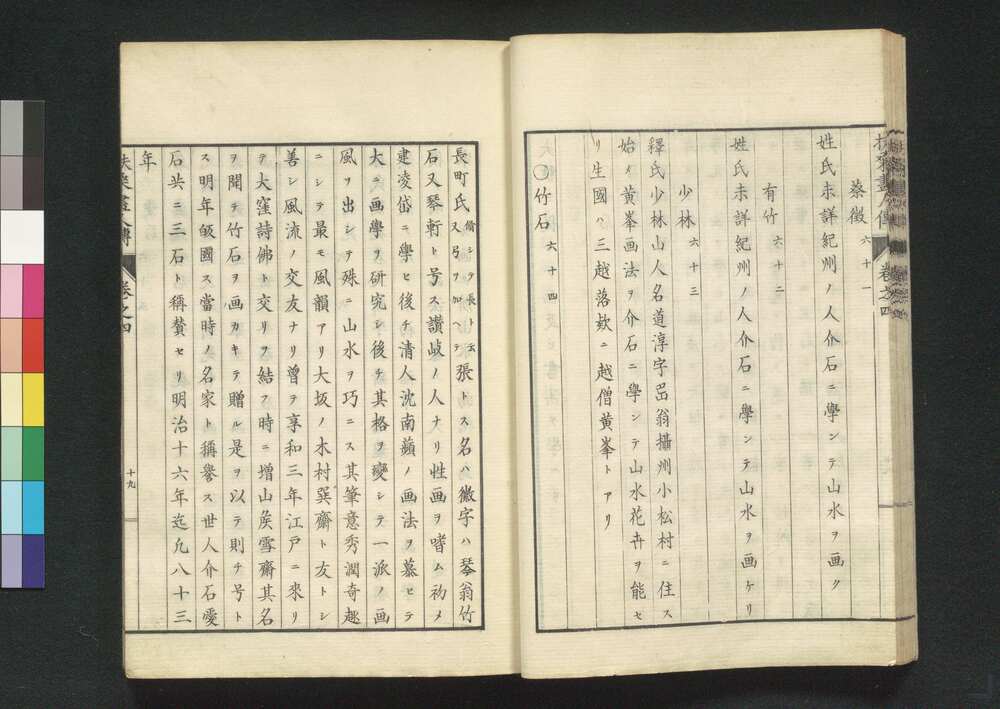 扶桑畫人傳 卷之四
蔡徴 六十一
姓氏未詳紀州ノ人介石ニ學ンテ山水ヲ画ク
有竹 六十二
姓氏未詳紀州ノ人介石ニ學ンテ山水ヲ画ケリ
少林 六十三
釋氏少林山人名道淳字嵒翁攝州小松村ニ住ス
始メ黄峯画法ヲ介石ニ學ンテ山水花卉ヲ能セ
リ生國ハ三越落欵ニ越僧黄峯トアリ
〇竹石 六十四
長町氏脩シテ長ト云又弓ヲ加ヘテ張トス名ハ徽字ハ琴翁竹
石又琴軒ト号ス讃岐ノ人ナリ性画ヲ嗜ム初メ
建凌岱ニ學ヒ後チ清人沈南蘋ノ画法ヲ慕ヒテ
大ニ画學ヲ研究シ後チ其格ヲ變シテ一派ノ画
風ヲ出シテ殊ニ山水ヲ巧ニス其筆意秀潤奇趣
ニシテ最モ風韻アリ大坂ノ木村巽齋ト友トシ
善シ風流ノ交友ナリ曽ヲ享和三年江戸ニ來リ
テ大窪詩佛ト交リヲ結フ時ニ増山矦雪齋其名
ヲ聞テ竹石ヲ画カキテ贈ル是ヲ以テ則チ号ト
ス明年皈國ス當時ノ名家ト稱譽ス世人介石愛
石共ニ三石ト稱賛セリ明治十六年迄凢八十三
年
扶桑畫人傳 卷之四 十九